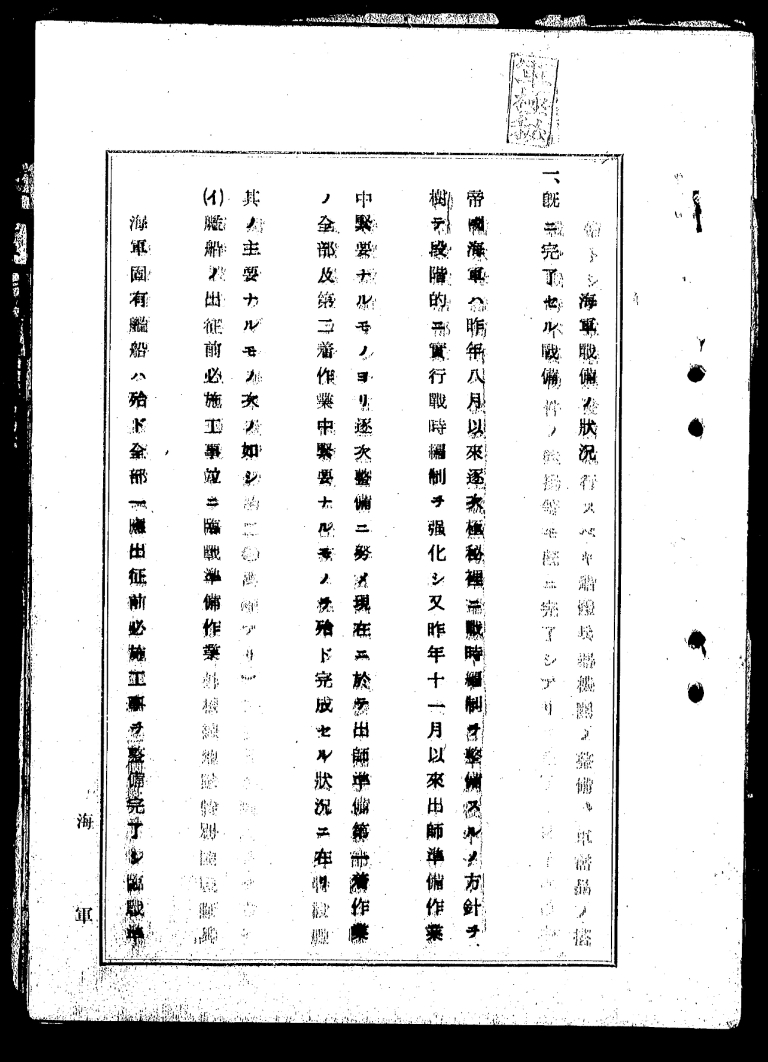 軍極秘
海軍戰備ノ狀況
一、既ニ完了セル戰備
帝國海軍ハ昨年八月以來逐次極秘裡ニ戰時編制ヲ整備スルノ方針ヲ
樹テ段階的ニ實行戰時編制ヲ强化シ又昨年十一月以來出師準備作業
中緊要ナルモノヨリ逐次整備ニ努メ現在ニ於テ出師準備第一着作業
ノ全部及第二着作業中緊要ナルモノヲ殆ド完成セル狀況ニ在リ
其ノ主要ナルモノ次ノ如シ
(イ)艦船ノ出征前必施工事竝ニ臨戰準備作業
海軍固有艦船ハ殆ド全部一應出征前必施工事ヲ整備完了シ臨戰準
海軍